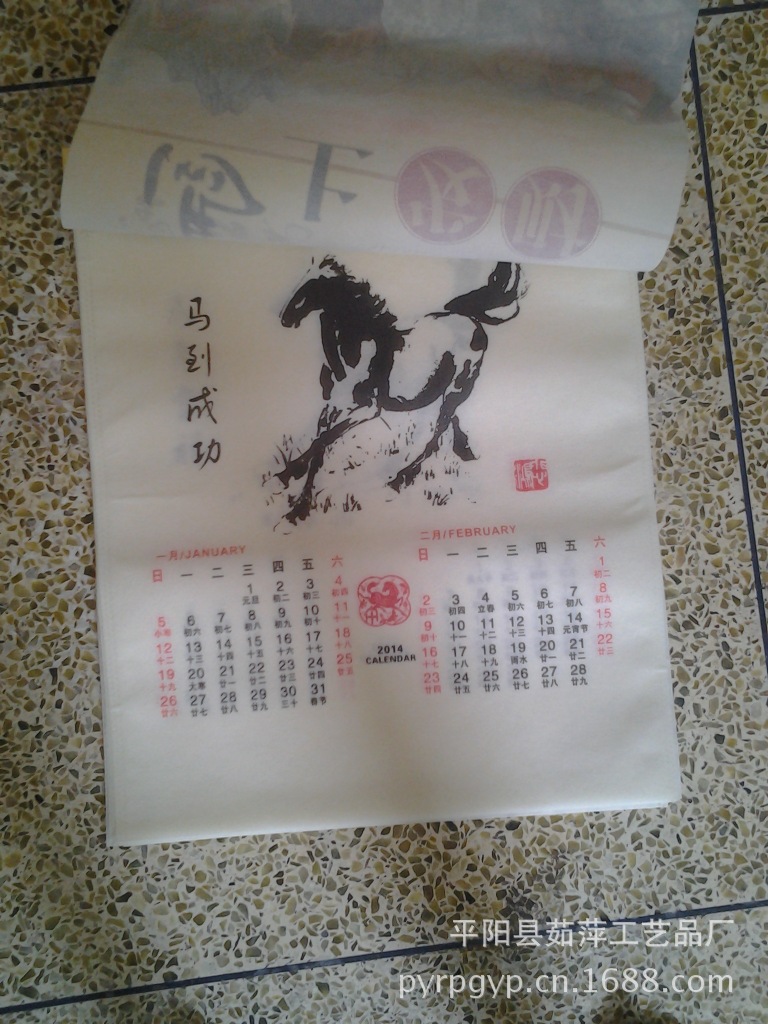 马到成功
一月/JANUARY
日 一 二 三 四 五 六
1 2 3 4
元旦 初二 初三 初四
5 6 7 8 9 10 11
小寒 初六 初七 初八 初九 初十 十一
12 13 14 15 16 17 18
十二 十三 十四 十五 十六 十七 十八
19 20 21 22 23 24 25
十九 大寒 廿一 廿二 廿三 廿四 廿五
26 27 28 29 30 31
廿六 廿七 廿八 廿九 三十 春节
2014
CALENDAR
二月/FEBRUARY
日 一 二 三 四 五 六
1
初二
2 3 4 5 6 7 8
初三 初四 立春 初六 初七 初八 初九
9 10 11 12 13 14 15
初十 十一 十二 十三 十四 元宵节 十六
16 17 18 19 20 21 22
十七 十八 十九 雨水 廿一 廿二 廿三
23 24 25 26 27 28
廿四 廿五 廿六 廿七 廿八 廿九
平阳县茹萍工艺品厂
pyrpgyp.cn.1688.com